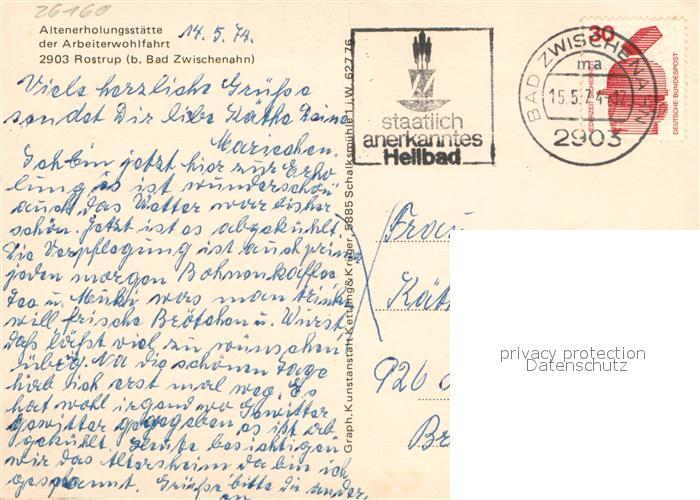 26160
Altenerholungsstätte
der Arbeiterwohlfahrt
2903 Rostrup (b. Bad Zwischenahn)
14.5.74.
Viele herzliche Grüße
sendet Dir liebe Käthe Deine
Mariechen.
Ich bin jetzt hier zur Erho
lung es ist wunderschön
auch das Wetter war bisher
schön. Jetzt ist es abgekühlt.
Die Verpflegung ist auch prima
jeden morgen Bohnenkaffee,
Tee u. was man trinken
will frische Brötchen u. Wurst
daß läßt viel zu wünschen
übrig. Na die schönen Tage
hab ich erst mal weg. Es
hat wohl irgend wo Gewitter
gewitter gegeben es ist ab
gekühlt. Heute besichtigen
wir das Altersheim da bin ich
gespannt. Grüße bitte die ander
en
Graph. Kunstanstalt Kettling & Krüger, 5885 Schalksmühle i.W. 62776
staatlich
anerkanntes
Heilbad
BAD ZWISCHENAHN
ma
15.5.74-17
2903
30
JEDERZEIT SICHERHEIT
DEUTSCHE BUNDESPOST
Frau
Käth
Br
privacy protection
Datenschutz